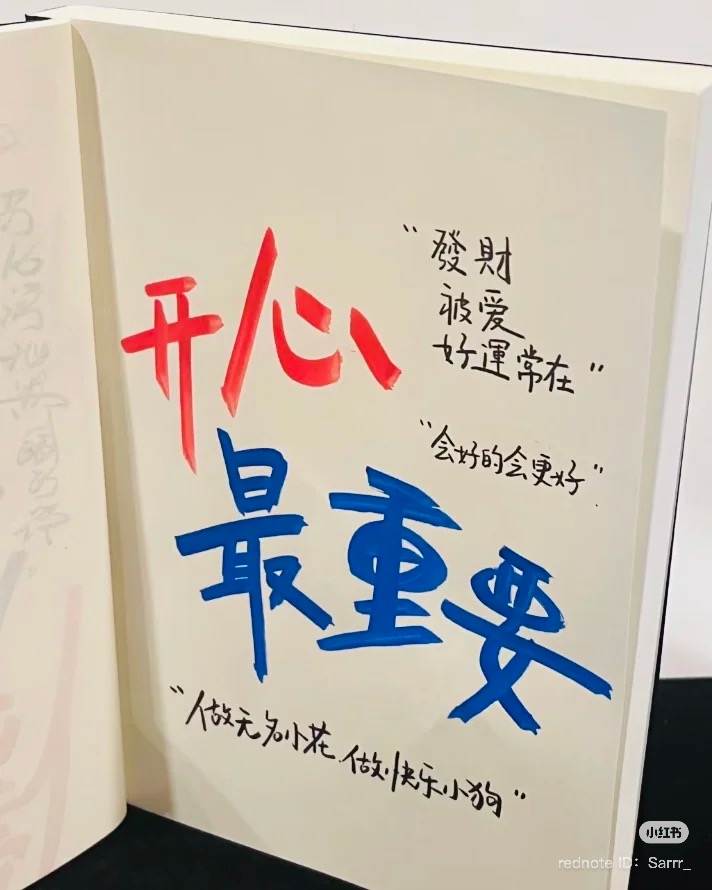 开心
"發財
被爱
好運常在"
"会好的会更好"
最重要
"做无名小花 做快乐小狗"
小红书
rednote ID: Sarrr_